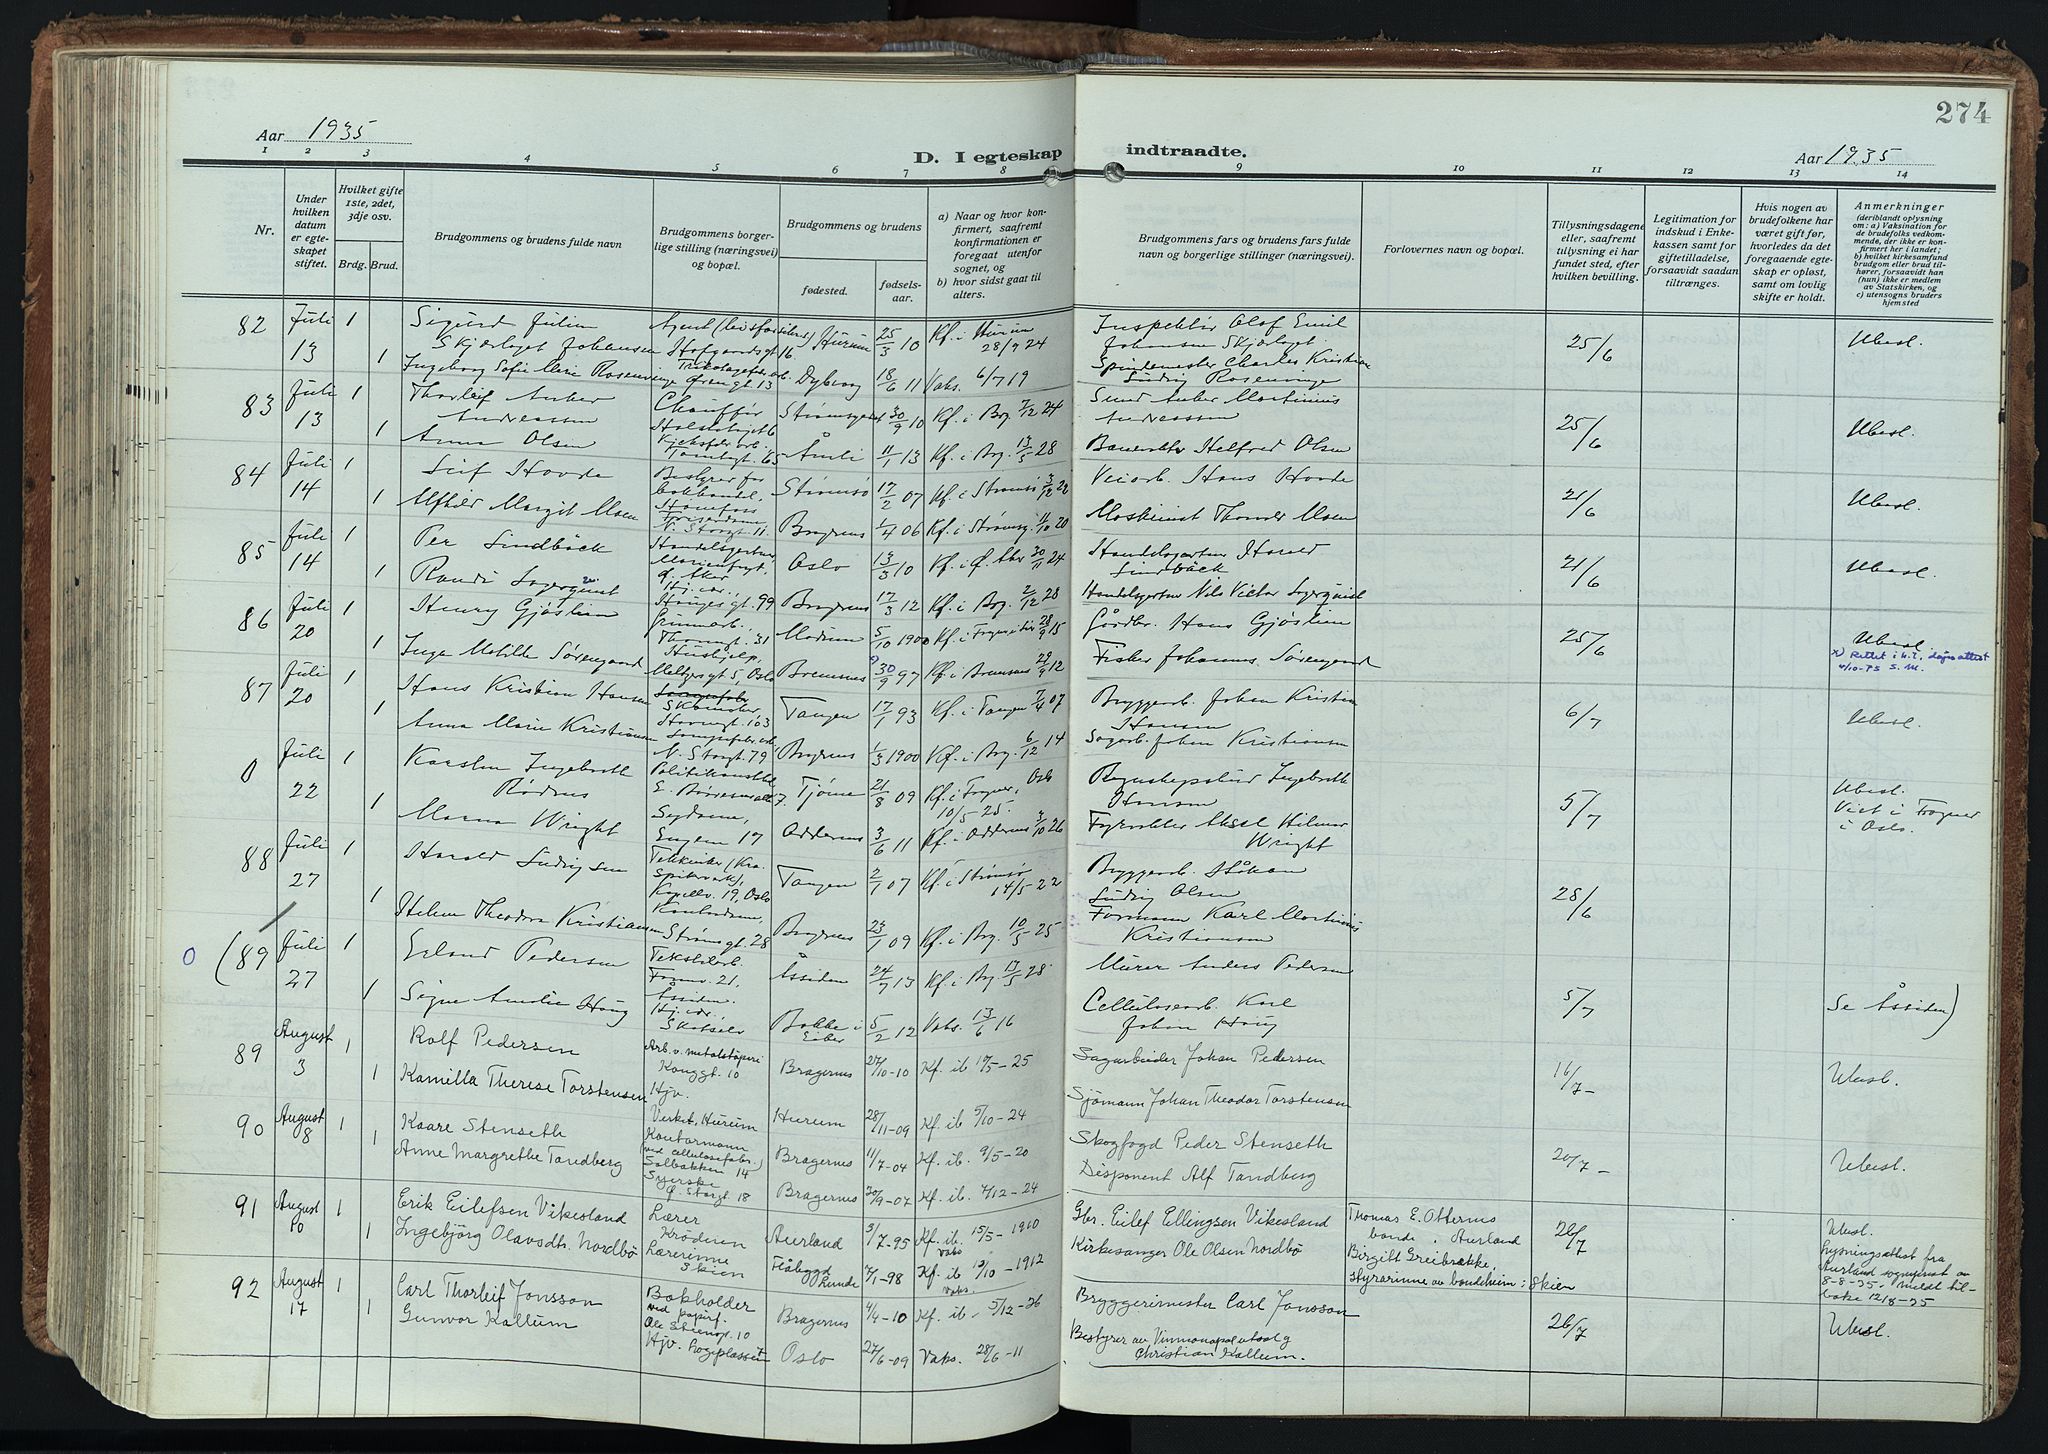 274
Aar 1935
D. I egteskap indtraadte.
Aar 1935
1 2 3 4 5 6 7 8 9 10 11 12 13 14
Nr.
Under hvilken datum er egteskapet stiftet.
Hvilket gifte 1ste, 2det, 3dje osv.
Brdg. Brud.
Brudgommens og brudens fulde navn
Brudgommens borgerlige stilling (næringsvei) og bopæl.
Brudgommens og brudens
fødested.
fødselsaar.
a) Naar og hvor konfirmert, saafremt konfirmationen er foregaat utenfor sognet, og
b) hvor sidst gaat til alters.
Brudgommens fars og brudens fars fulde navn og borgerlige stillinger (næringsvei).
Forlovernes navn og bopæl.
Tillysningsdagene eller, saafremt tilysning ei har fundet sted, efter hvilken bevilling.
Legitimation for indskud i Enkekassen samt for giftetilladelse, forsaavidt saadan tiltrænges.
Hvis nogen av brudefolkene har været gift før, hvorledes da det foregaaende egteskap er opløst, samt om lovlig skifte er holdt.
Anmerkninger
(deriblandt oplysning om: a) Vaksination for de brudefolks vedkommende, der ikke er konfirmert her i landet;
b) hvilket kirkesamfund brudgom eller brud tilhører, forsaavidt han (hun) ikke er medlem av Statskirken, og
c) utensogns bruders hjemsted
82 Juli 13 1 Sigurd Julin Skjørlaget Johansen Hofgaardsgt 16 Hurum 25/3 10 Kf. i Hurum 28/9 24 Inspektør Olaf Emil Johansen Skjørlaget 25/6 Ubesl.
1 Ingeborg Sofie Marie Rosenvinge Trikotagefabr.arb. Øvrengt 13 Dybvåg 18/6 11 Vaks. 6/7 19 Spindemester Charles Kristian Ludvig Rosenvinge
83 Juli 13 1 Thorleif Anker Andreassen Chauffør 30/9 10 Kf. i Brg. 7/12 24 Anker Martinius Andreassen 25/6 Ubesl.
1 Anna Olsen Kjeksfabr. arb. Tomtegt. 65 Åmli 11/1 13 Kf. i Brg. 13/5 28 Helfred Olsen
84 Juli 14 1 Leif Hovde Bestyrer for bokhandel, Hønefoss Strømsø 17/2 07 Kf. i Strømsø 3/12 22 Veiarb. Hans Hovde 21/6 Ubesl.
1 Alfhild Margit Moen N. Storgt. 11 Bragernes 1/4 06 Kf. i Strømsg. 11/10 20 Maskinist Thorvald Moen
85 Juli 14 1 Per Lindbäck Handelsgartner Ø. Aker Oslo 13/3 10 Kf. i Ø. Aker 30/11 24 Handelsgartner Harald Lindbäck 21/6 Ubesl.
1 Randi Lagerquist Hj.vær., Haugesgt. 99 Bragernes 17/3 12 Kf. i Brg. 2/12 28 Handelsgartner Nils Victor Lagerquist
86 Juli 20 1 Henry Gjøslien Thornegt. 31 Modum 5/10 1900 28/9 15 Gårdbr. Hans Gjøslien 25/6 Ubesl.
x) Rettet i h.t. dåpsattest 4/10-75 S.M.
1 Inga Matilde Sørengaard Hushjelp Meltzersgt 5, Oslo Bremsnes 30/9 97 Kf. i Bremsnes 29/9 12 Fisker Johannes Sørengaard
87 Juli 20 1 Hans Kristian Hansen Skomaker, Havnegt. 103 Tangen 17/1 93 Kf. i Tangen 7/4 07 Bryggearb. Johan Kristian Hansen 6/7 Ubesl.
1 Anna Marie Kristiansen N. Storgt. 79 Bragernes 1/3 1900 Kf. i Brg. 6/12 14 Sagarb. Johan Kristiansen
0 Juli 22 1 Karsten Ingebreth Rødsrus Politikonstabel E. Børresens alle 7. Tjøme 21/8 09 Kf. i Frogner, Oslo 10/5 25. Ingebreth Hansen 5/7 Ubesl. Viet i Frogner i Oslo.
1 Marna Wright Sydame, Engene 17 Oddernes 3/6 11 Kf. i Oddernes 3/10 26 Fyrvokter Aksel Hilmar Wright
88 Juli 27 1 Harald Ludvigsen Kapellv. 19, Oslo Tangen 2/1 07 Kf. i Strømsø 14/5 22 Bryggearb. Håkon Ludvig Olsen 28/6
1 Helene Theodora Kristiansen Kontordame, Strømsgt. 28 Bragernes 23/1 09 Kf. i Brg. 10/5 25 Formann Karl Martinius Kristiansen
0 (89 Juli 27 1 Erland Pedersen Tekstilarb. 21, Åssiden. Åssiden 24/7 13 Kf. i Brg. 17/5 28 Murer Anders Pedersen 5/7 Se Åssiden)
1 Signe Amalie Haug Hj.vær., Skotselv Bakke i Eiker 5/2 12 Vaks. 13/6 16 Cellulosearb. Karl Johan Haug
89 August 3 1 Rolf Pedersen Arb. v. metalstøperi Konggt. 10 Bragernes 27/10-10 Kf. ib 17/5-25 Sagarbeider Johan Pedersen 16/7- Ubesl.
1 Kamilla Therese Torstensen Hjv. Verket, Hurum Hurum 28/11-09 Kf. ib 5/10-24 Sjømann Johan Theodor Torstensen
90 August 8 1 Kaare Stenseth Kontormann (ved cellulosefabr.) Solbakken 14 Bragernes 11/7-04 Kf. ib. 9/5-20 Skogfogd Peder Stenseth 20/7- Ubesl.
1 Anne Margrethe Tandberg Syerske Ø. Storgt. 18 Bragernes 30/9-07 Kf. ib. 7/12-24 Disponent Alf Tandberg
91 August 10 1 Erik Eilefsen Vikesland Lærer Krøderen Aurland 3/7-95 Kf. ib. 15/5-1910 Vaks Gbr. Eilef Ellingsen Vikesland Thomas E. Otternes bonde, Aurland 26/7 Ubesl. Lysningsattest fra Aurland sogneprest av 8-8-35, meldt tilbake 12/8-35
1 Ingebjørg Olavsdtr. Nordbø Lærerinne Skien Flåbygd Lunde Kf. ib 13/10-1912 Vaks. Kirkesanger Ole Olsen Nordbø Birgitt Greibrokke, styrarinne av bondeheim i Skien
92 August 17 1 Carl Thorleif Jonsson Bokholder ved papirf. Ole Steensgt. 10 Bragernes 4/4-10 Kf. ib - 5/12-26 Bryggerimester Carl Jonsson 26/7 Ubesl.
1 Gunvor Kallum Hjv. Losjeplassen Oslo 27/6-09 Vaks. 28/6-11 Bestyrer av Vinmonopolutsalg Christian Kallum.